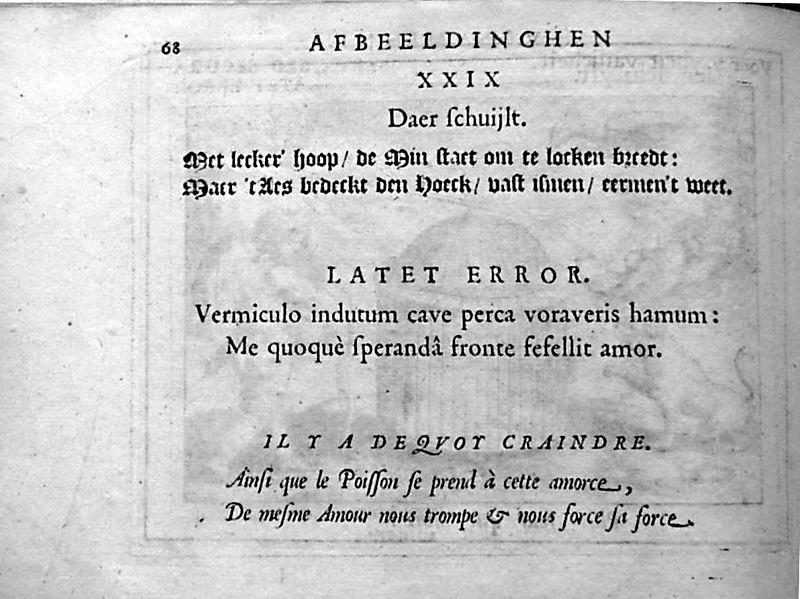 68
AFBEELDINGHEN
XXIX
Daer ſchuijlt.
Met lecker' hoop / de Min ſtaet om te locken breedt:
Maer 'tAes bedeckt den Hoeck / vaſt iſmen / eermen't weet.
LATET ERROR.
Vermiculo indutum cave perca voraveris hamum:
Me quoquè ſperandâ fronte fefellit amor.
IL Y A DEQVOY CRAINDRE.
Ainſi que le Poiſſon ſe prend à cette amorce,
De meſme Amour nous trompe & nous force ſa force.